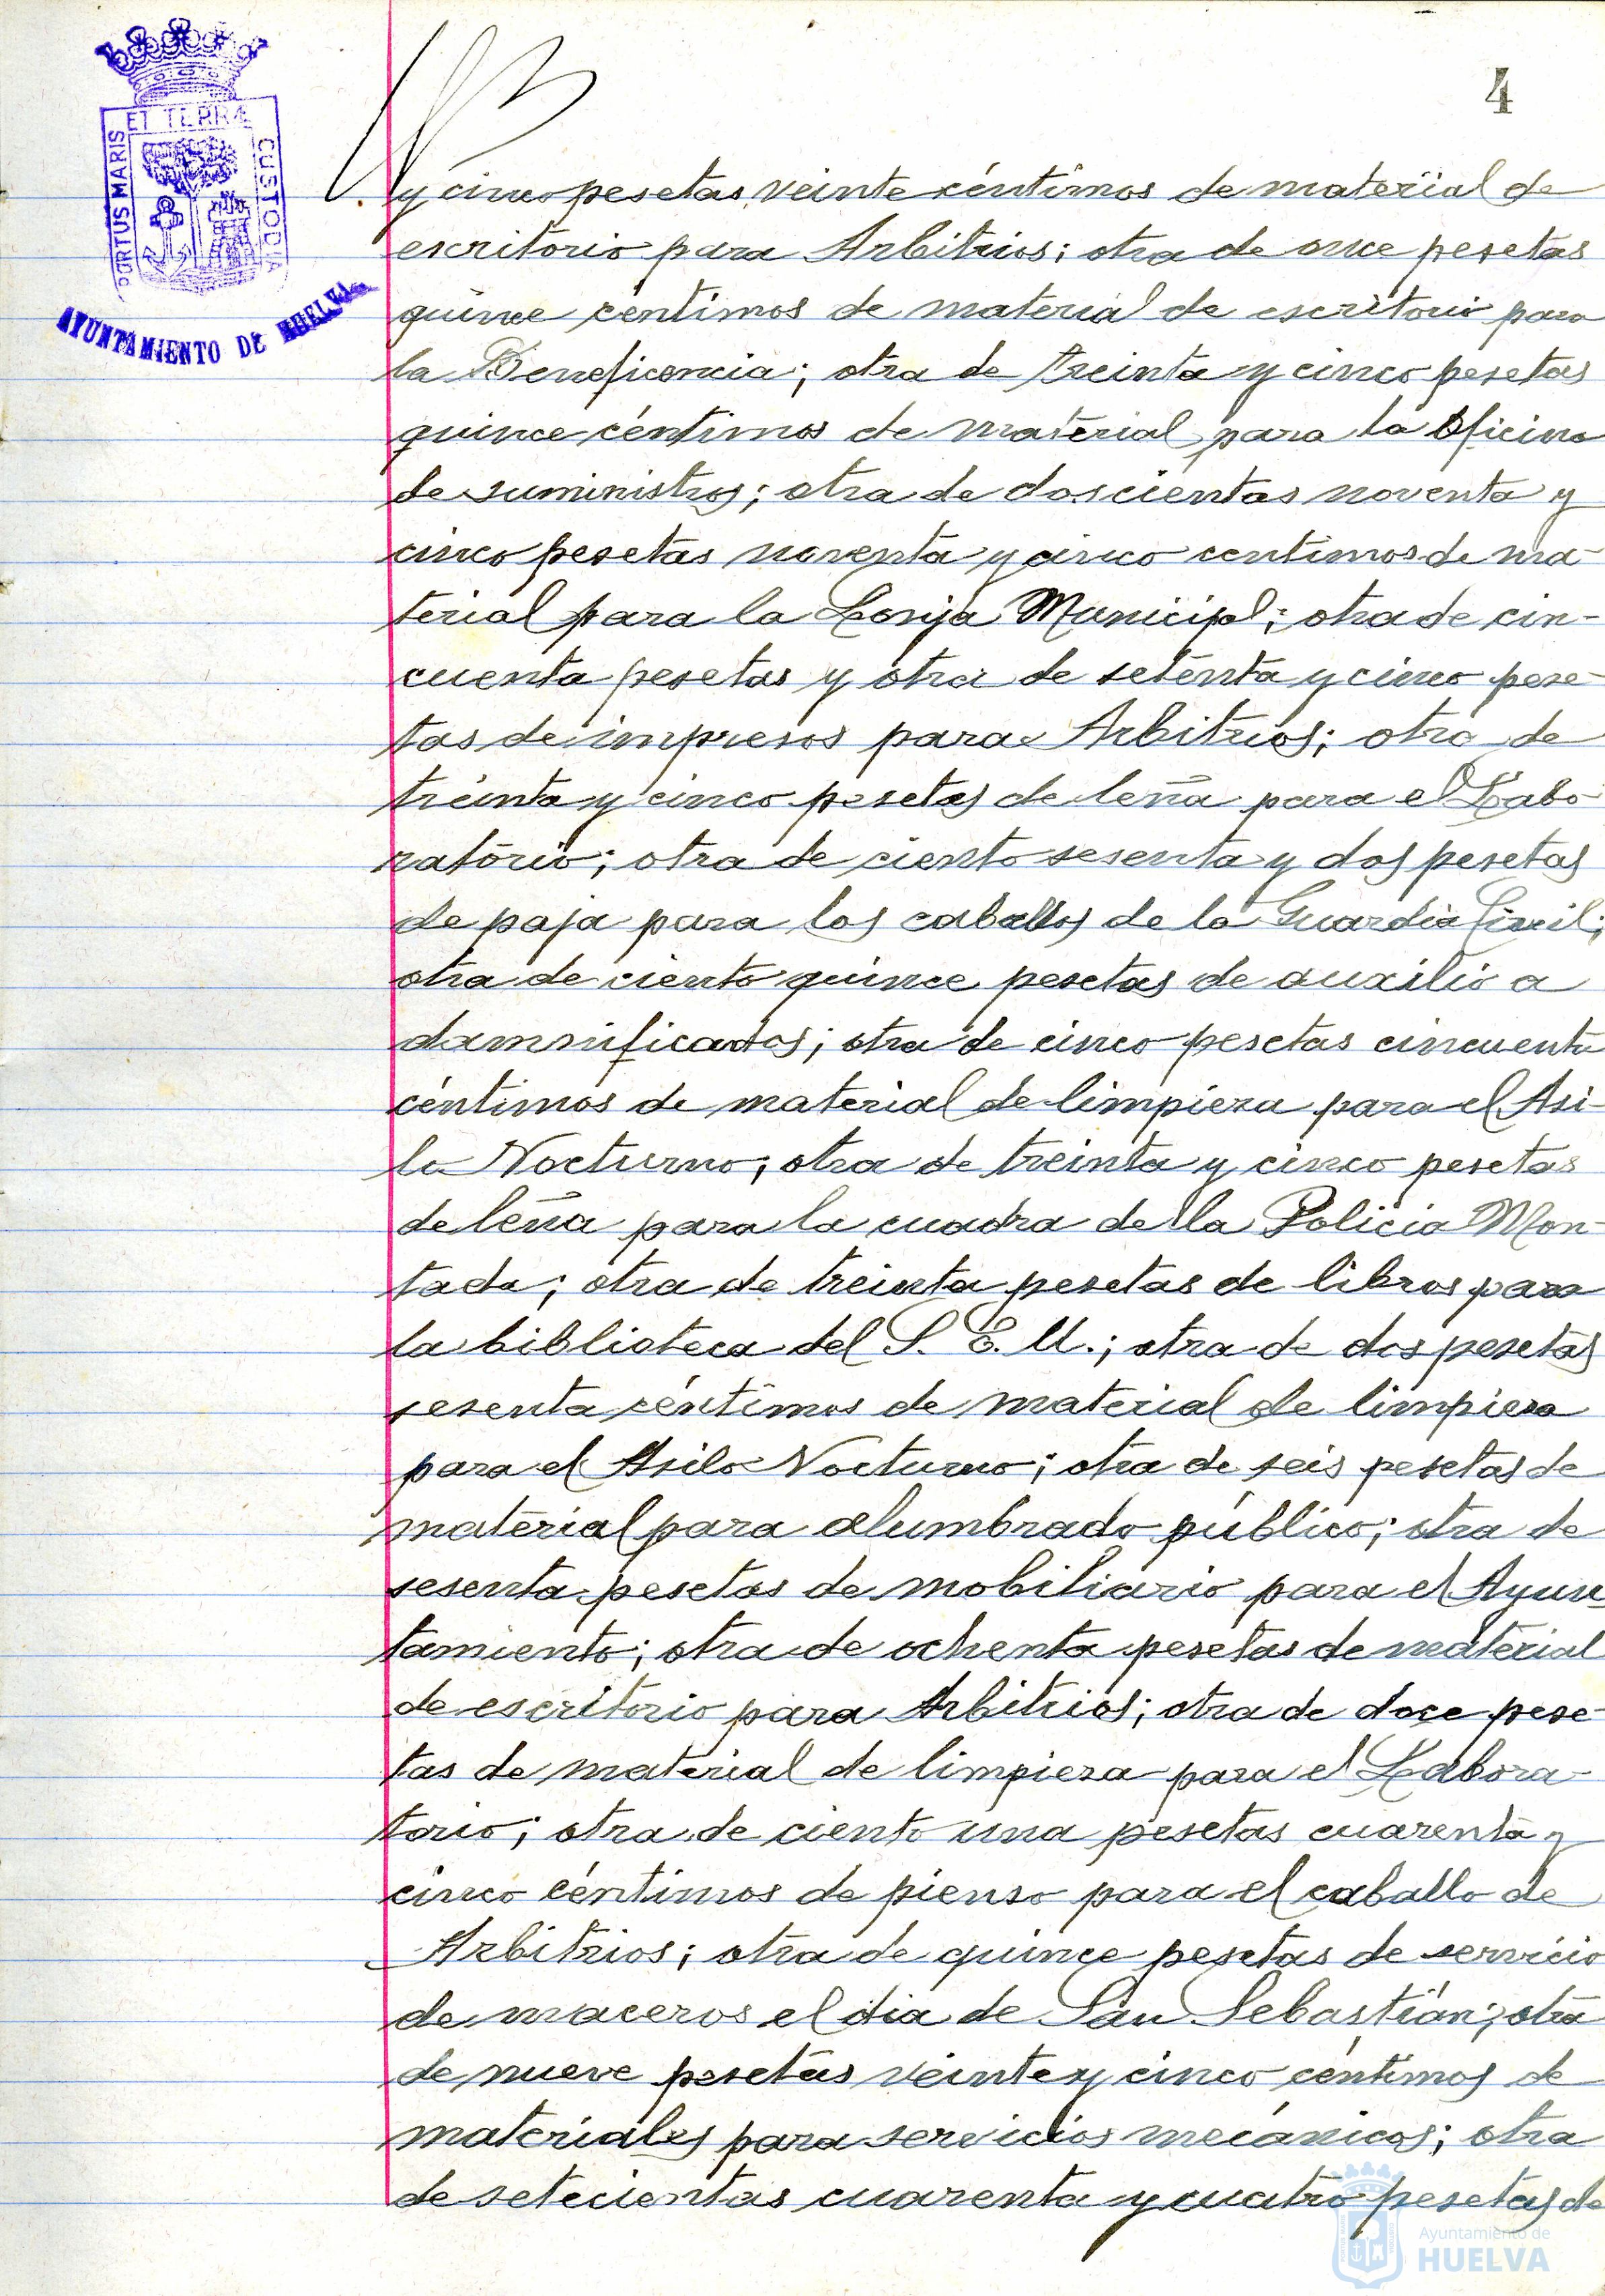 4
PORTUS MARIS ET TERRÆ CUSTODIA
AYUNTAMIENTO DE HUELVA
y cinco pesetas veinte céntimos de material de
escritorio para Arbitrios; otra de once pesetas
quince centimos de material de escritorio para
la Beneficencia; otra de treinta y cinco pesetas
quince céntimos de material para la Oficina
de suministros; otra de doscientas noventa y
cinco pesetas noventa y cinco centimos de ma-
terial para la Lonja Municipal; otra de cin-
cuenta pesetas y otra de setenta y cinco pese-
tas de impresos para Arbitrios; otra de
treinta y cinco pesetas de leña para el Labo-
ratorio; otra de ciento sesenta y dos pesetas
de paja para los caballos de la Guardia Civil;
otra de ciento quince pesetas de auxilio a
damnificados; otra de cinco pesetas cincuenta
céntimos de material de limpieza para el Asi-
lo Nocturno; otra de treinta y cinco pesetas
de leña para la cuadra de la Policia Mon-
tada; otra de treinta pesetas de libros para
la biblioteca del S. E. U.; otra de dos pesetas
sesenta céntimos de material de limpieza
para el Asilo Nocturno; otra de seis pesetas de
material para alumbrado público; otra de
sesenta pesetas de mobiliario para el Ayun-
tamiento; otra de ochenta pesetas de material
de escritorio para Arbitrios; otra de doce pese-
tas de material de limpieza para el Labora-
torio; otra de ciento una pesetas cuarenta y
cinco céntimos de pienso para el caballo de
Arbitrios; otra de quince pesetas de servicio
de maceros el dia de San Sebastián; otra
de nueve pesetas veinte y cinco céntimos de
materiales para servicios mecánicos; otra
de setecientas cuarenta y cuatro pesetas de
Ayuntamiento de
HUELVA